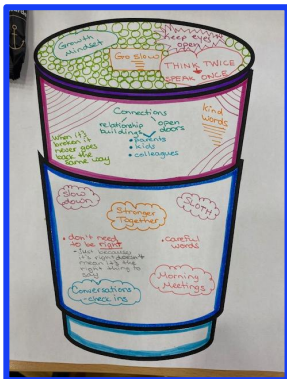 Growth
Mindset
Go Slow
keep eyes
open
THINK TWICE
SPEAK ONCE
Connections
relationship
building
open
doors
• parents
• kids
• colleagues
kind
words
when it's
broken it
never goes
back the
same way
Slow
down
Stronger
Together
SLOTH
• don't need
to be right
- Just because
it's right doesn't
mean it's the
right thing to
say
• careful
words
Conversations
- check ins
Morning
Meetings